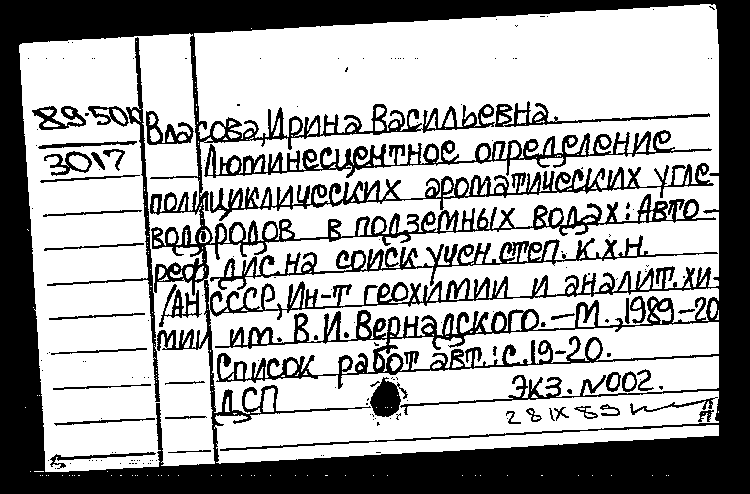 89-50к
3017
Власова, Ирина Васильевна.
Люминесцентное определение
полициклических ароматических угле-
водородов в подземных водах: Авто-
реф. дис. на соиск. учен. степ. к.х.н.
/АН СССР, Ин-т геохимии и аналит. хи-
мии им. В.И. Вернадского. — М., 1989. - 20
Список работ авт.: с. 19-20.
ДСП Экз. №002.
28 IX 89